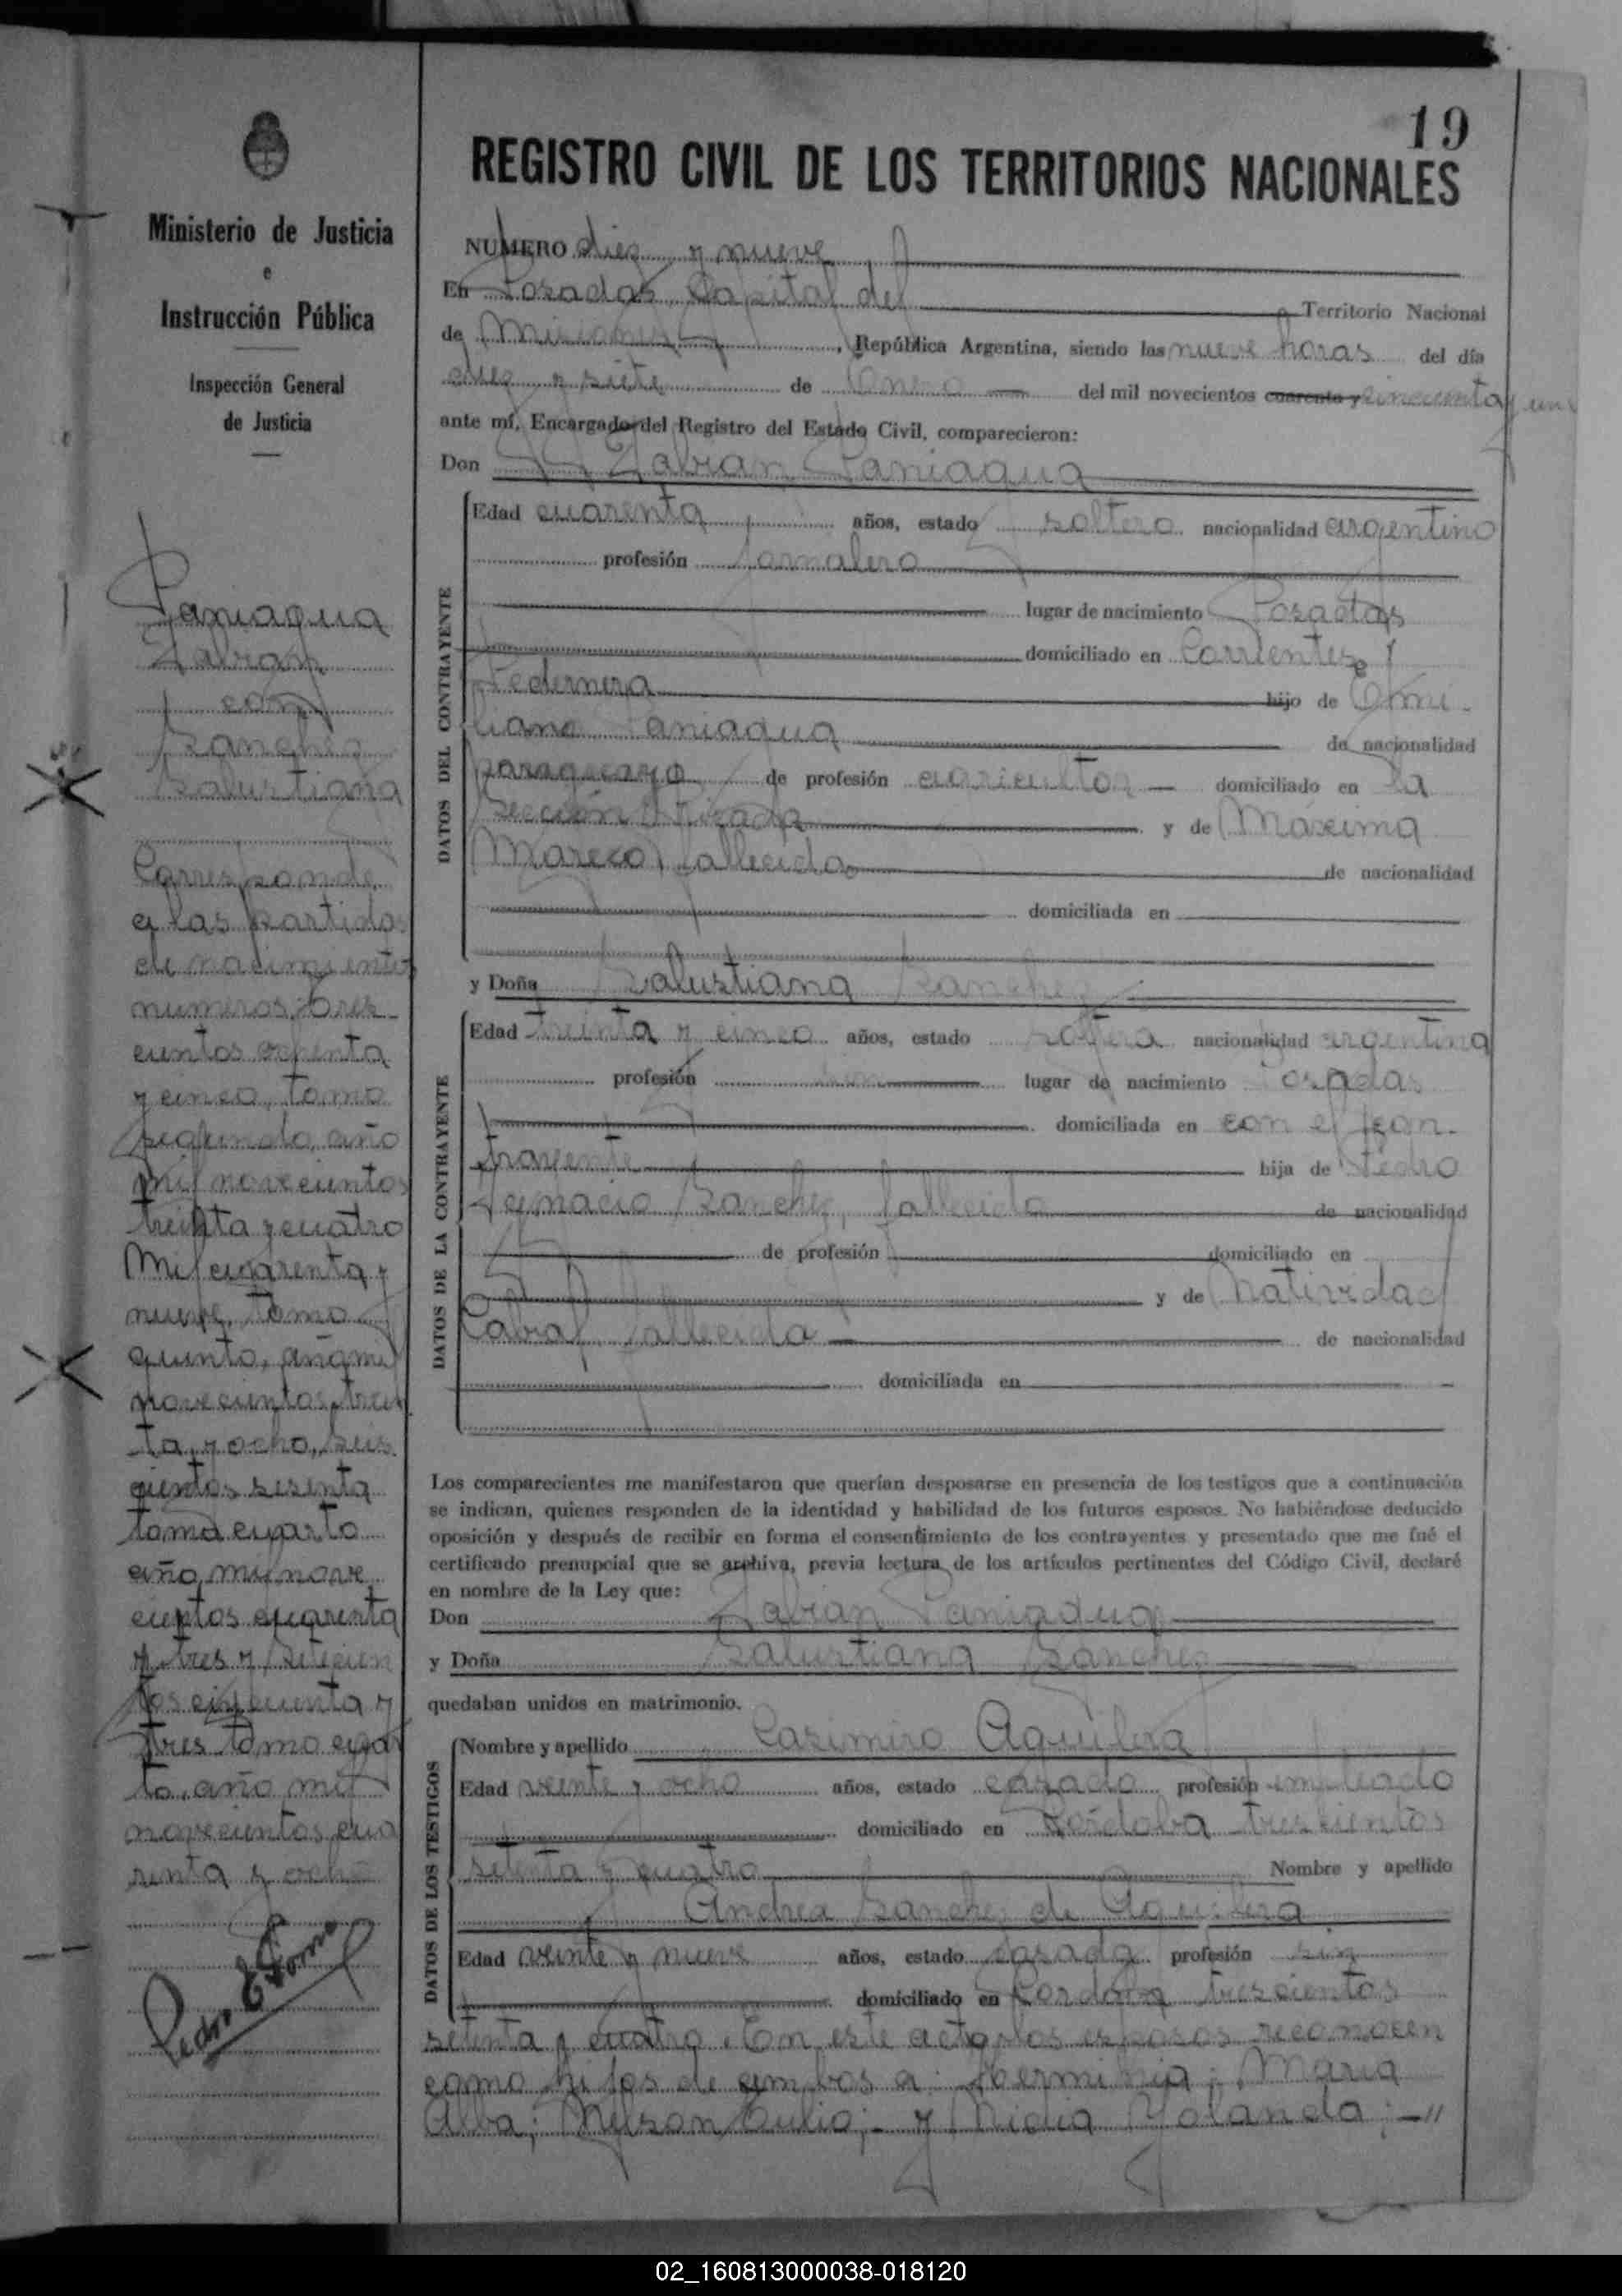 19
REGISTRO CIVIL DE LOS TERRITORIOS NACIONALES
Ministerio de Justicia
e
Instrucción Pública
Inspección General
de Justicia
Paniagua
Fabian
con
Sanchez
Salustiana
Corresponde
a las partidas
de nacimientos
numeros: tres-
cientos ochenta
y cinco, tomo
segundo, año
mil novecientos
treinta y cuatro
Mil cuarenta y
nueve, tomo
quinto, año mil
novecientos trein
ta y ocho, seis
cientos sesenta
tomo cuarto
año mil nove
cientos cuarenta
y tres y setecien
tos cincuenta y
tres tomo cuar
to, año mil
novecientos cua
renta y ocho
NUMERO diez y nueve
En Posadas Capital del Territorio Nacional
de Misiones, República Argentina, siendo las nueve horas del día
diez y siete de Enero del mil novecientos cuarenta y cincuenta y un
ante mí, Encargado del Registro del Estado Civil, comparecieron:
Don Fabian Paniagua
DATOS DEL CONTRAYENTE
Edad cuarenta años, estado soltero nacionalidad argentino
profesión Jornalero
lugar de nacimiento Posadas
domiciliado en Corrientes y
Pedernera hijo de Emi-
liano Paniagua de nacionalidad
paraguayo de profesión agricultor domiciliado en la
Sección y de Maxima
Marezo, fallecida de nacionalidad
domiciliada en
y Doña Salustiana Sanchez
DATOS DE LA CONTRAYENTE
Edad treinta y cinco años, estado soltera nacionalidad argentina
profesión sin lugar de nacimiento Posadas
domiciliada en con el con-
trayente hija de Pedro
Ignacio Sanchez, fallecido de nacionalidad
de profesión domiciliado en
y de Natividad
Cabral, fallecida de nacionalidad
domiciliada en
Los comparecientes me manifestaron que querían desposarse en presencia de los testigos que a continuación
se indican, quienes responden de la identidad y habilidad de los futuros esposos. No habiéndose deducido
oposición y después de recibir en forma el consentimiento de los contrayentes y presentado que me fué el
certificado prenupcial que se archiva, previa lectura de los artículos pertinentes del Código Civil, declaré
en nombre de la Ley que:
Don Fabian Paniagua
y Doña Salustiana Sanchez
quedaban unidos en matrimonio.
DATOS DE LOS TESTIGOS
Nombre y apellido Casimiro Aguilera
Edad veinte y ocho años, estado casado profesión empleado
domiciliado en Córdoba trescientos
setenta y cuatro Nombre y apellido
Andrea Sanchez de Aguilera
Edad veinte y nueve años, estado casada profesión sin
domiciliado en Cordoba trescientos
setenta y cuatro. En este acto los esposos reconocen
como hijos de ambos a: Herminia; Maria
Alba; Nelson Tulio;- y Nidia Yolanda;-"
02_160813000038-018120